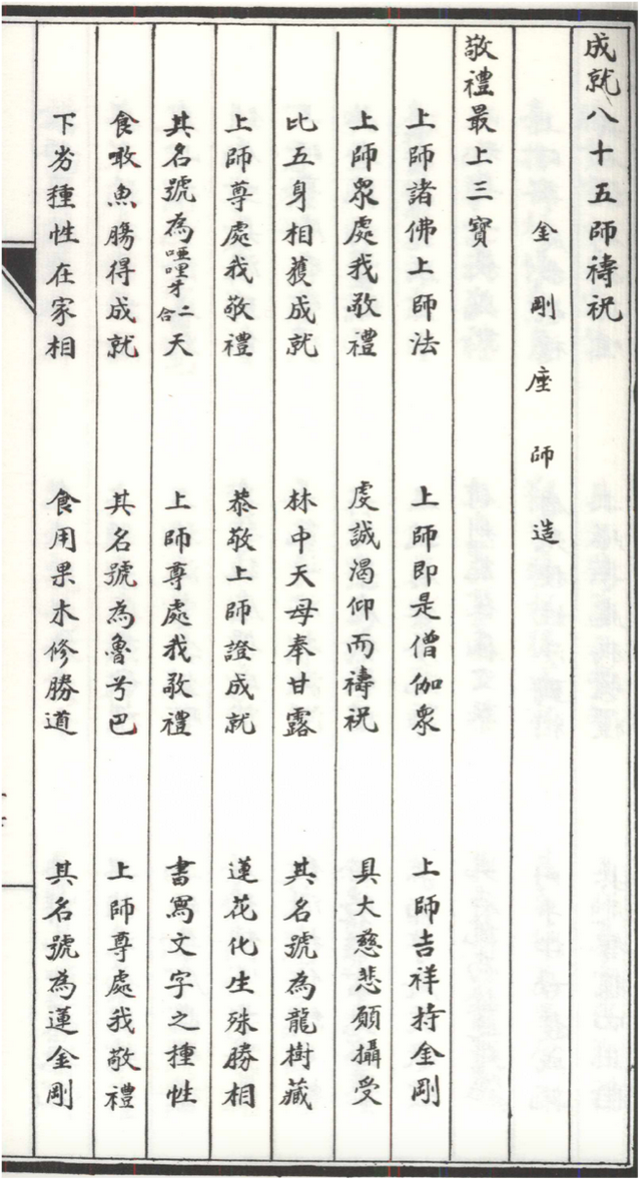 成就八十五師禱祝
金剛座師造
敬禮最上三寶
上師諸佛上師法 上師即是僧伽衆 上師吉祥持金剛
上師衆處我敬禮 虔誠渴仰而禱祝 具大慈悲願攝受
比五身相獲成就 林中天母奉甘露 其名號為龍樹藏
上師尊處我敬禮 恭敬上師證成就 蓮花化生殊勝相
其名號為啞哩牙二合天 上師尊處我敬禮 書寫文字之種性
食噉魚膓得成就 其名號為魯兮巴 上師尊處我敬禮
下劣種性在家相 食用果木修勝道 其名號為蓮金剛